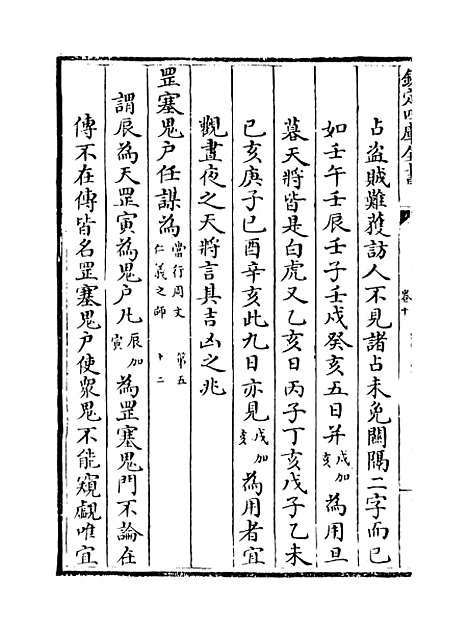 欽定四庫全書
卷十
占盜賊難獲訪人不見諸占未免關隔二字而已
如壬午壬辰壬子壬戌癸亥五日并戌加亥為用旦
暮天將皆是白虎又乙亥日丙子丁亥戊子乙未
己亥庚子己酉辛亥此九日亦見戌加亥為用者宜
觀晝夜之天將言其吉凶之兆
罡塞鬼户任謀為當行周文仁義之師 第五十二
謂辰為天罡寅為鬼户凡辰加寅為罡塞鬼門不論在
傳不在傳皆名罡塞鬼户使衆鬼不能窺覷唯宜